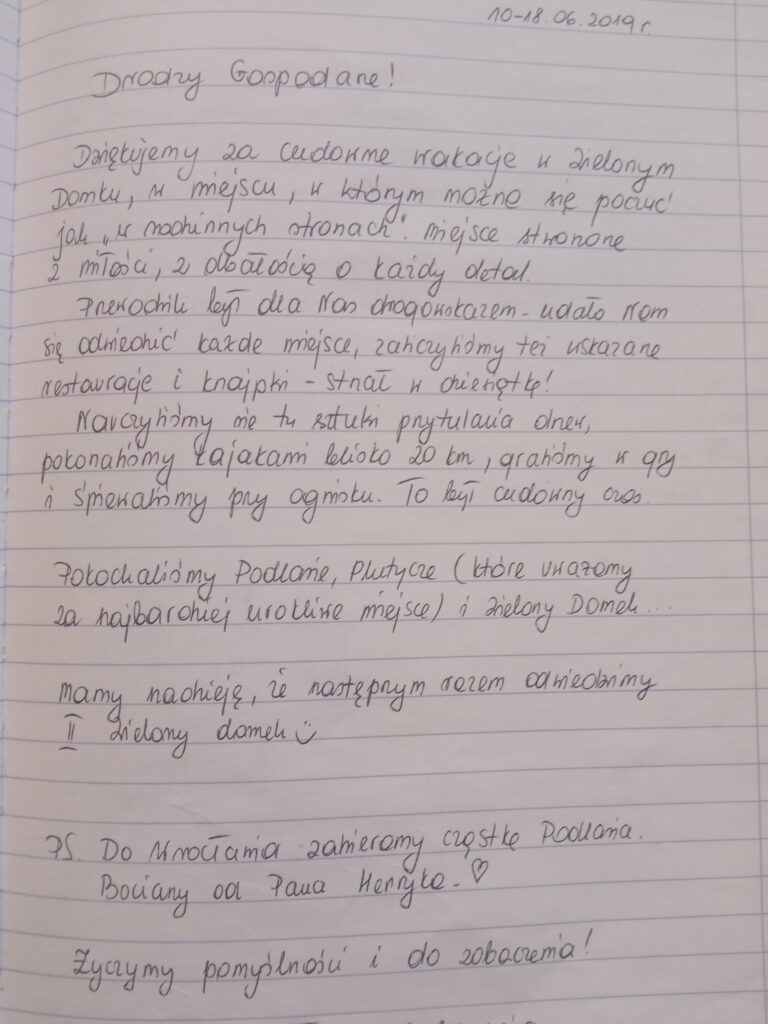 10-18.06.2019 r.
Drodzy Gospodarze!
Dziękujemy za cudowne wakacje w Zielonym
Domku, w miejscu, w którym można się poczuć
jak „w rodzinnych stronach". Miejsce stworzone
z miłości, z dbałością o każdy detal.
Przewodnik był dla Nas drogowskazem - udało Nam
się odwiedzić każde miejsce, zaliczyliśmy też wskazane
restauracje i knajpki - strzał w dziesiątkę!
Nauczyliśmy się tu sztuki przytulania drzew,
pokonaliśmy kajakami blisko 20 km, graliśmy w gry
i śpiewaliśmy przy ognisku. To był cudowny czas.
Pokochaliśmy Podlasie, Plutycze (które uważamy
za najbardziej urokliwe miejsce) i Zielony Domek...
Mamy nadzieję, że następnym razem odwiedzimy
II Zielony domek
PS. Do Wrocławia zabieramy cząstkę Podlasia.
Bociany od Pana Henryka. ♡
Życzymy pomyślności i do zobaczenia!